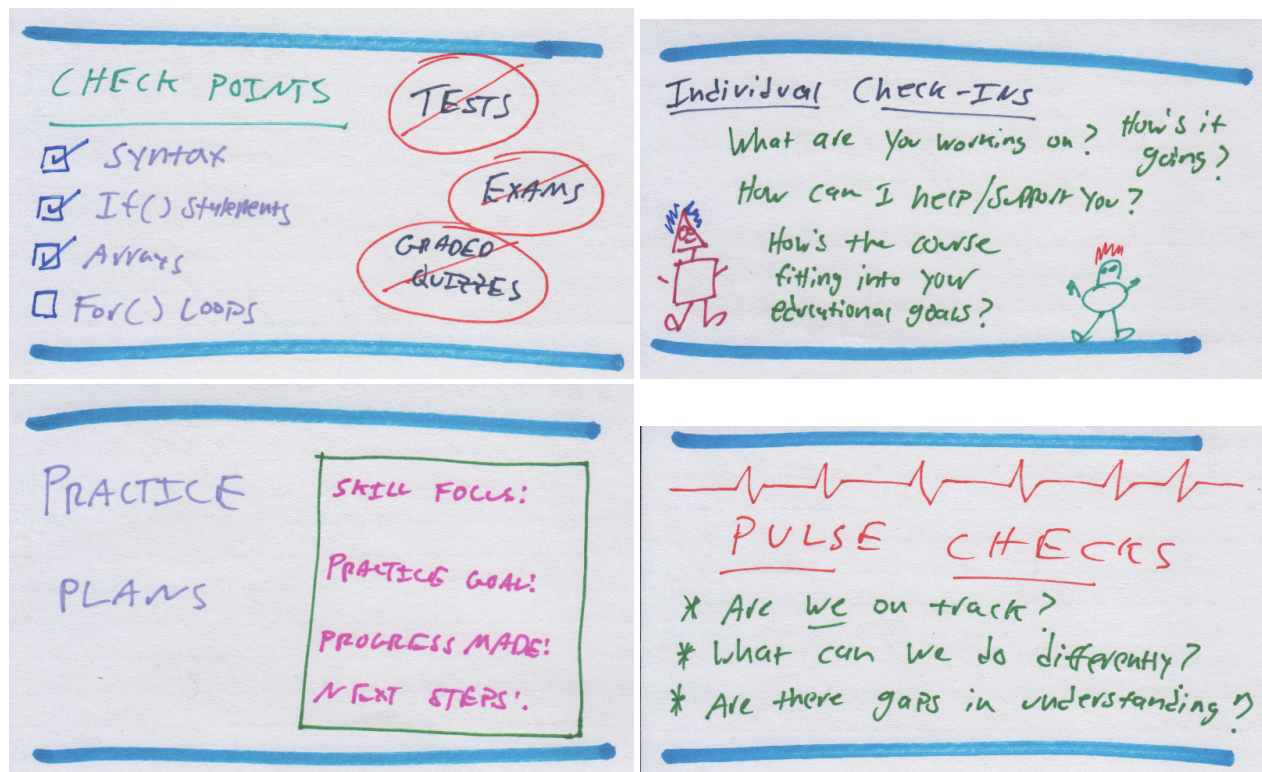 CHECK POINTS
Syntax
If() Statements
Arrays
For() Loops
TESTS
EXAMS
GRADED
QUIZZES
Individual Check-INs
What are you working on?
How's it
going?
How can I help/support you?
How's the course
fitting into your
educational goals?
PRACTICE
PLANS
SKILL FOCUS:
PRACTICE GOAL:
PROGRESS MADE:
NEXT STEPS:
PULSE CHECKS
* Are we on track?
* What can we do differently?
* Are there gaps in understanding?